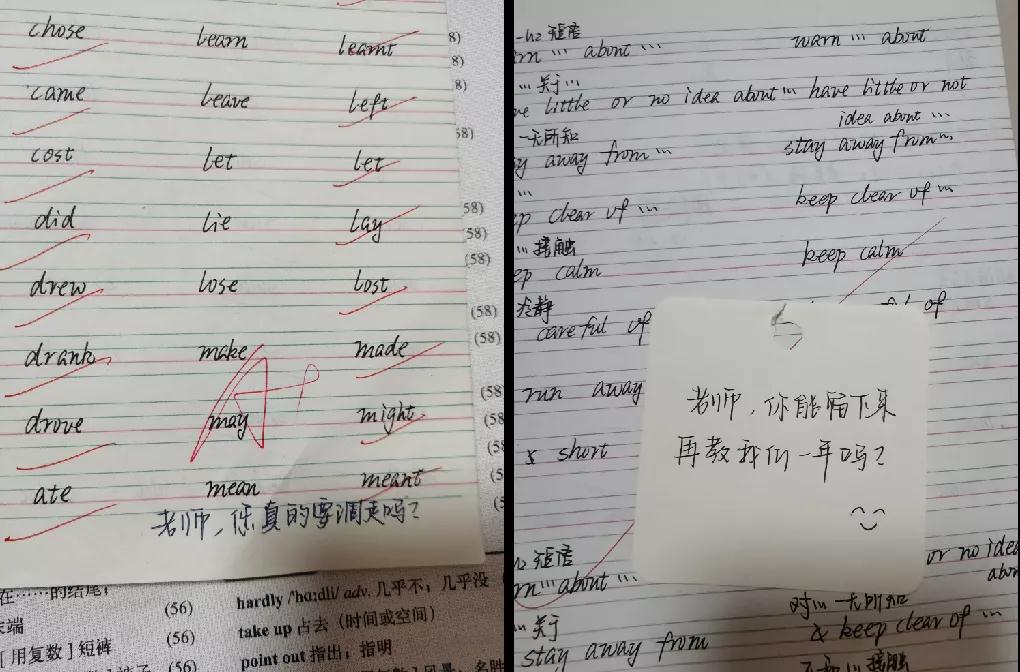 chose learn learnt
came leave left
cost let let
did lie lay
drew lose lost
drank make made
drove may might
ate mean meant
A+
老师，你真的要调走吗？
8)
8)
8)
58)
58)
(58)
(58)
(58)
(58)
(58)
(58)
(58)
在……的结尾，
末端 (56)
[用复数] 短裤 (56)
(56)
hardly /'hɑ:dli/ adv. 几乎不，几乎没
take up 占去（时间或空间）
point out 指出；指明
短语
about … warn … about
… 关于 …
little or no idea about … have little or not
idea about …
一无所知
away from … stay away from …
…
clear of … keep clear of …
… 接触
calm keep calm
冷静
careful of of
run away
short
老师，你能留下来
再教我们一年吗？
短语
about … or no idea
对… 一无所知
… 关于 & keep clear of …
stay away from 接触